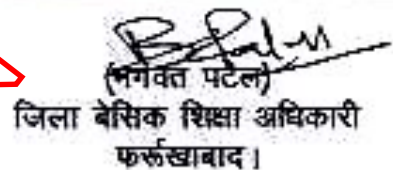 (भगवत पटेल)
जिला बेसिक शिक्षा अधिकारी
फर्रूखाबाद।